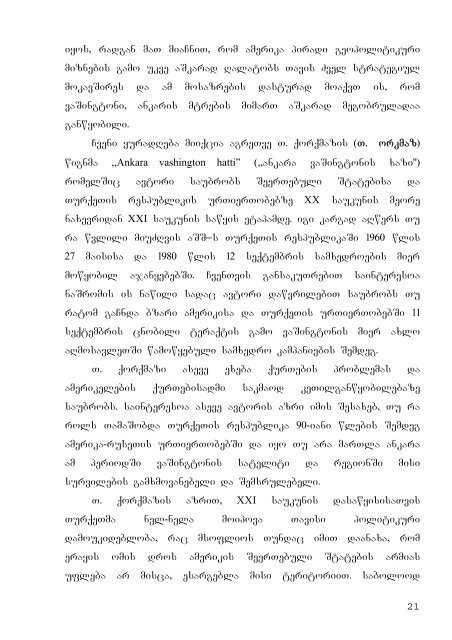 იყოს, რადგან მათ მიაჩნით, რომ ამერიკა პირადი გეოპოლიტიკური
მიზნების გამო უკვე აშკარად ღალატობს თავის ძველ სტრატეგიულ
მოკავშირეს და ამ მოსაზრების დასტურად მოაქვთ ის, რომ
ვაშინგტონი, ანკარის მტრების მიმართ აშკარად მეგობრულადაა
განწყობილი.
ჩვენი ყურადღება მიიქცია აგრეთვე თ. ქორქმაზის (თ. ორკმაზ)
წიგნმა „Ankara vashington hatti” („ანკარა ვაშინგტონის ხაზი”)
რომელშიც ავტორი საუბრობს შეერთებული შტატებისა და
თურქეთის რესპუბლიკის ურთიერთობებზე XX საუკუნის მეორე
ნახევრიდან XXI საუკუნის საწყის ეტაპამდე. იგი კარგად აღწერს თუ
რა წვლილი მიუძღვის აშშ–ს თურქეთის რესპუბლიკაში 1960 წლის
27 მაისისა და 1980 წლის 12 სექტემბრის სამხედროების მიერ
მოწყობილ აჯანყებებში. ჩვენთვის განსაკუთრებით საინტერესოა
ნაშრომის ის ნაწილი სადაც ავტორი დაწვრილებით საუბრობს თუ
რატომ გაჩნდა ბზარი ამერიკისა და თურქეთის ურთიერთობებში 11
სექტემბრის ცნობილი ტერაქტის გამო ვაშინგტონის მიერ ახლო
აღმოსავლეთში წამოწყებული სამხედრო კამპანიების შემდეგ.
თ. ქორქმაზი ასევე ეხება ქურთების პრობლემას და
ამერიკელების ქურთებისადმი საკმაოდ კეთილგანწყობილებაზე
საუბრობს. საინტერესოა ასევე ავტორის აზრი იმის შესახებ, თუ რა
როლს თამაშობდა თურქეთის რესპუბლიკა 90-იანი წლების შემდეგ
ამერიკა-რუსეთის ურთიერთობებში და იყო თუ არა მართლა ანკარა
ამ პერიოდში ვაშინგტონის სატელიტი და რეგიონში მისი
სურვილების გამხმოვანებელი და შემსრულებელი.
თ. ქორქმაზის აზრით, XXI საუკუნის დასაწყისისათვის
თურქეთმა ნელ-ნელა მოიპოვა თავისი პოლიტიკური
დამოუკიდებლობა, რაც მსოფლიოს თუნდაც იმით დაანახა, რომ
ერაყის ომის დროს ამერიკის შეერთებული შტატების არმიას
უფლება არ მისცა, ესარგებლა მისი ტერიტორიით. საბოლოოდ
21